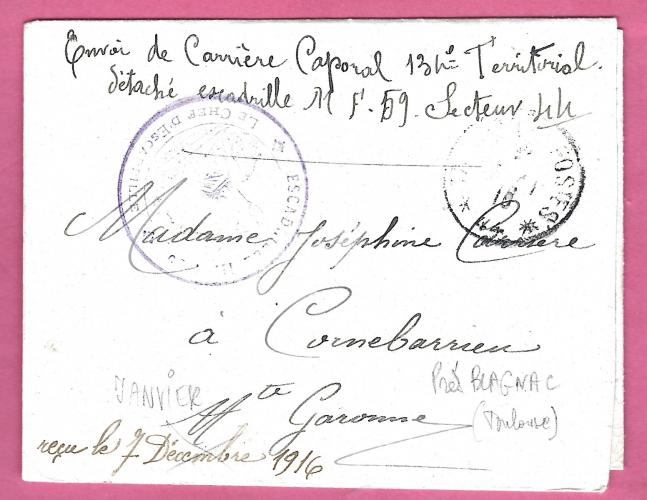 Envoi de Carrière Caporal 134e Territorial.
détaché escadrille M F. 59. Secteur 44
LE CHEF D'ESCADRILLE
ESCADRILLE
POSTES
Madame Joséphine Carrière
à Cornebarrieu
Près BLAGNAC
JANVIER
Hte Garonne
(Toulouse)
reçu le 7 Décembre 1916